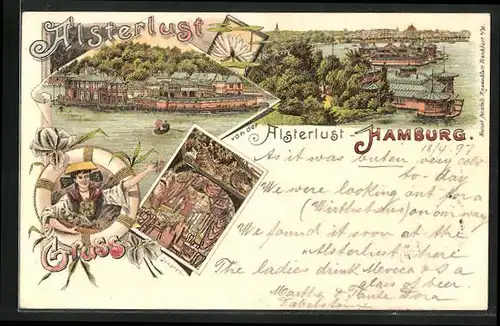 Alsterlust
von der
Alsterlust - HAMBURG.
18/4. 97
As it was buten very cold
to-day
We were looking out for a
(Wirthshaus) on our way
We found it soon at the
"Alsterlust" where
The ladies drink a
glass of beer.
Martha & Tante Dora
Gruss
Inneres